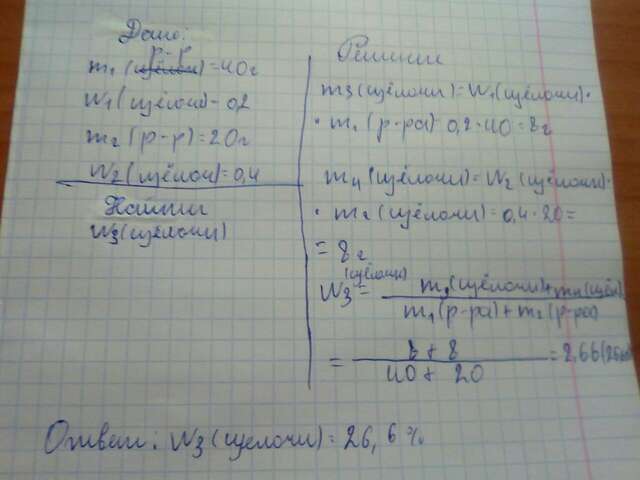 Дано:
р-р
m₁(щёлочи)=40г
W₁(щёлочи)-0,2
m₂(р-р)=20г
W₂(щёлочи)=0,4
Найти
W₃(щёлочи)
Решение
m₃(щёлочи)=W₁(щёлочи)·
·m₁(р-ра) 0,2·40=8г
m₄(щёлочи)=W₂(щёлочи)·
·m₂(щёлочи)=0,4·20=
=8г
(щёлочи)
W₃=
m₃(щёлочи)+m₄(щёл)
m₁(р-ра)+m₂(р-ра)
=
8+8
40+20
Ответ: W₃(щелочи)=26,6%